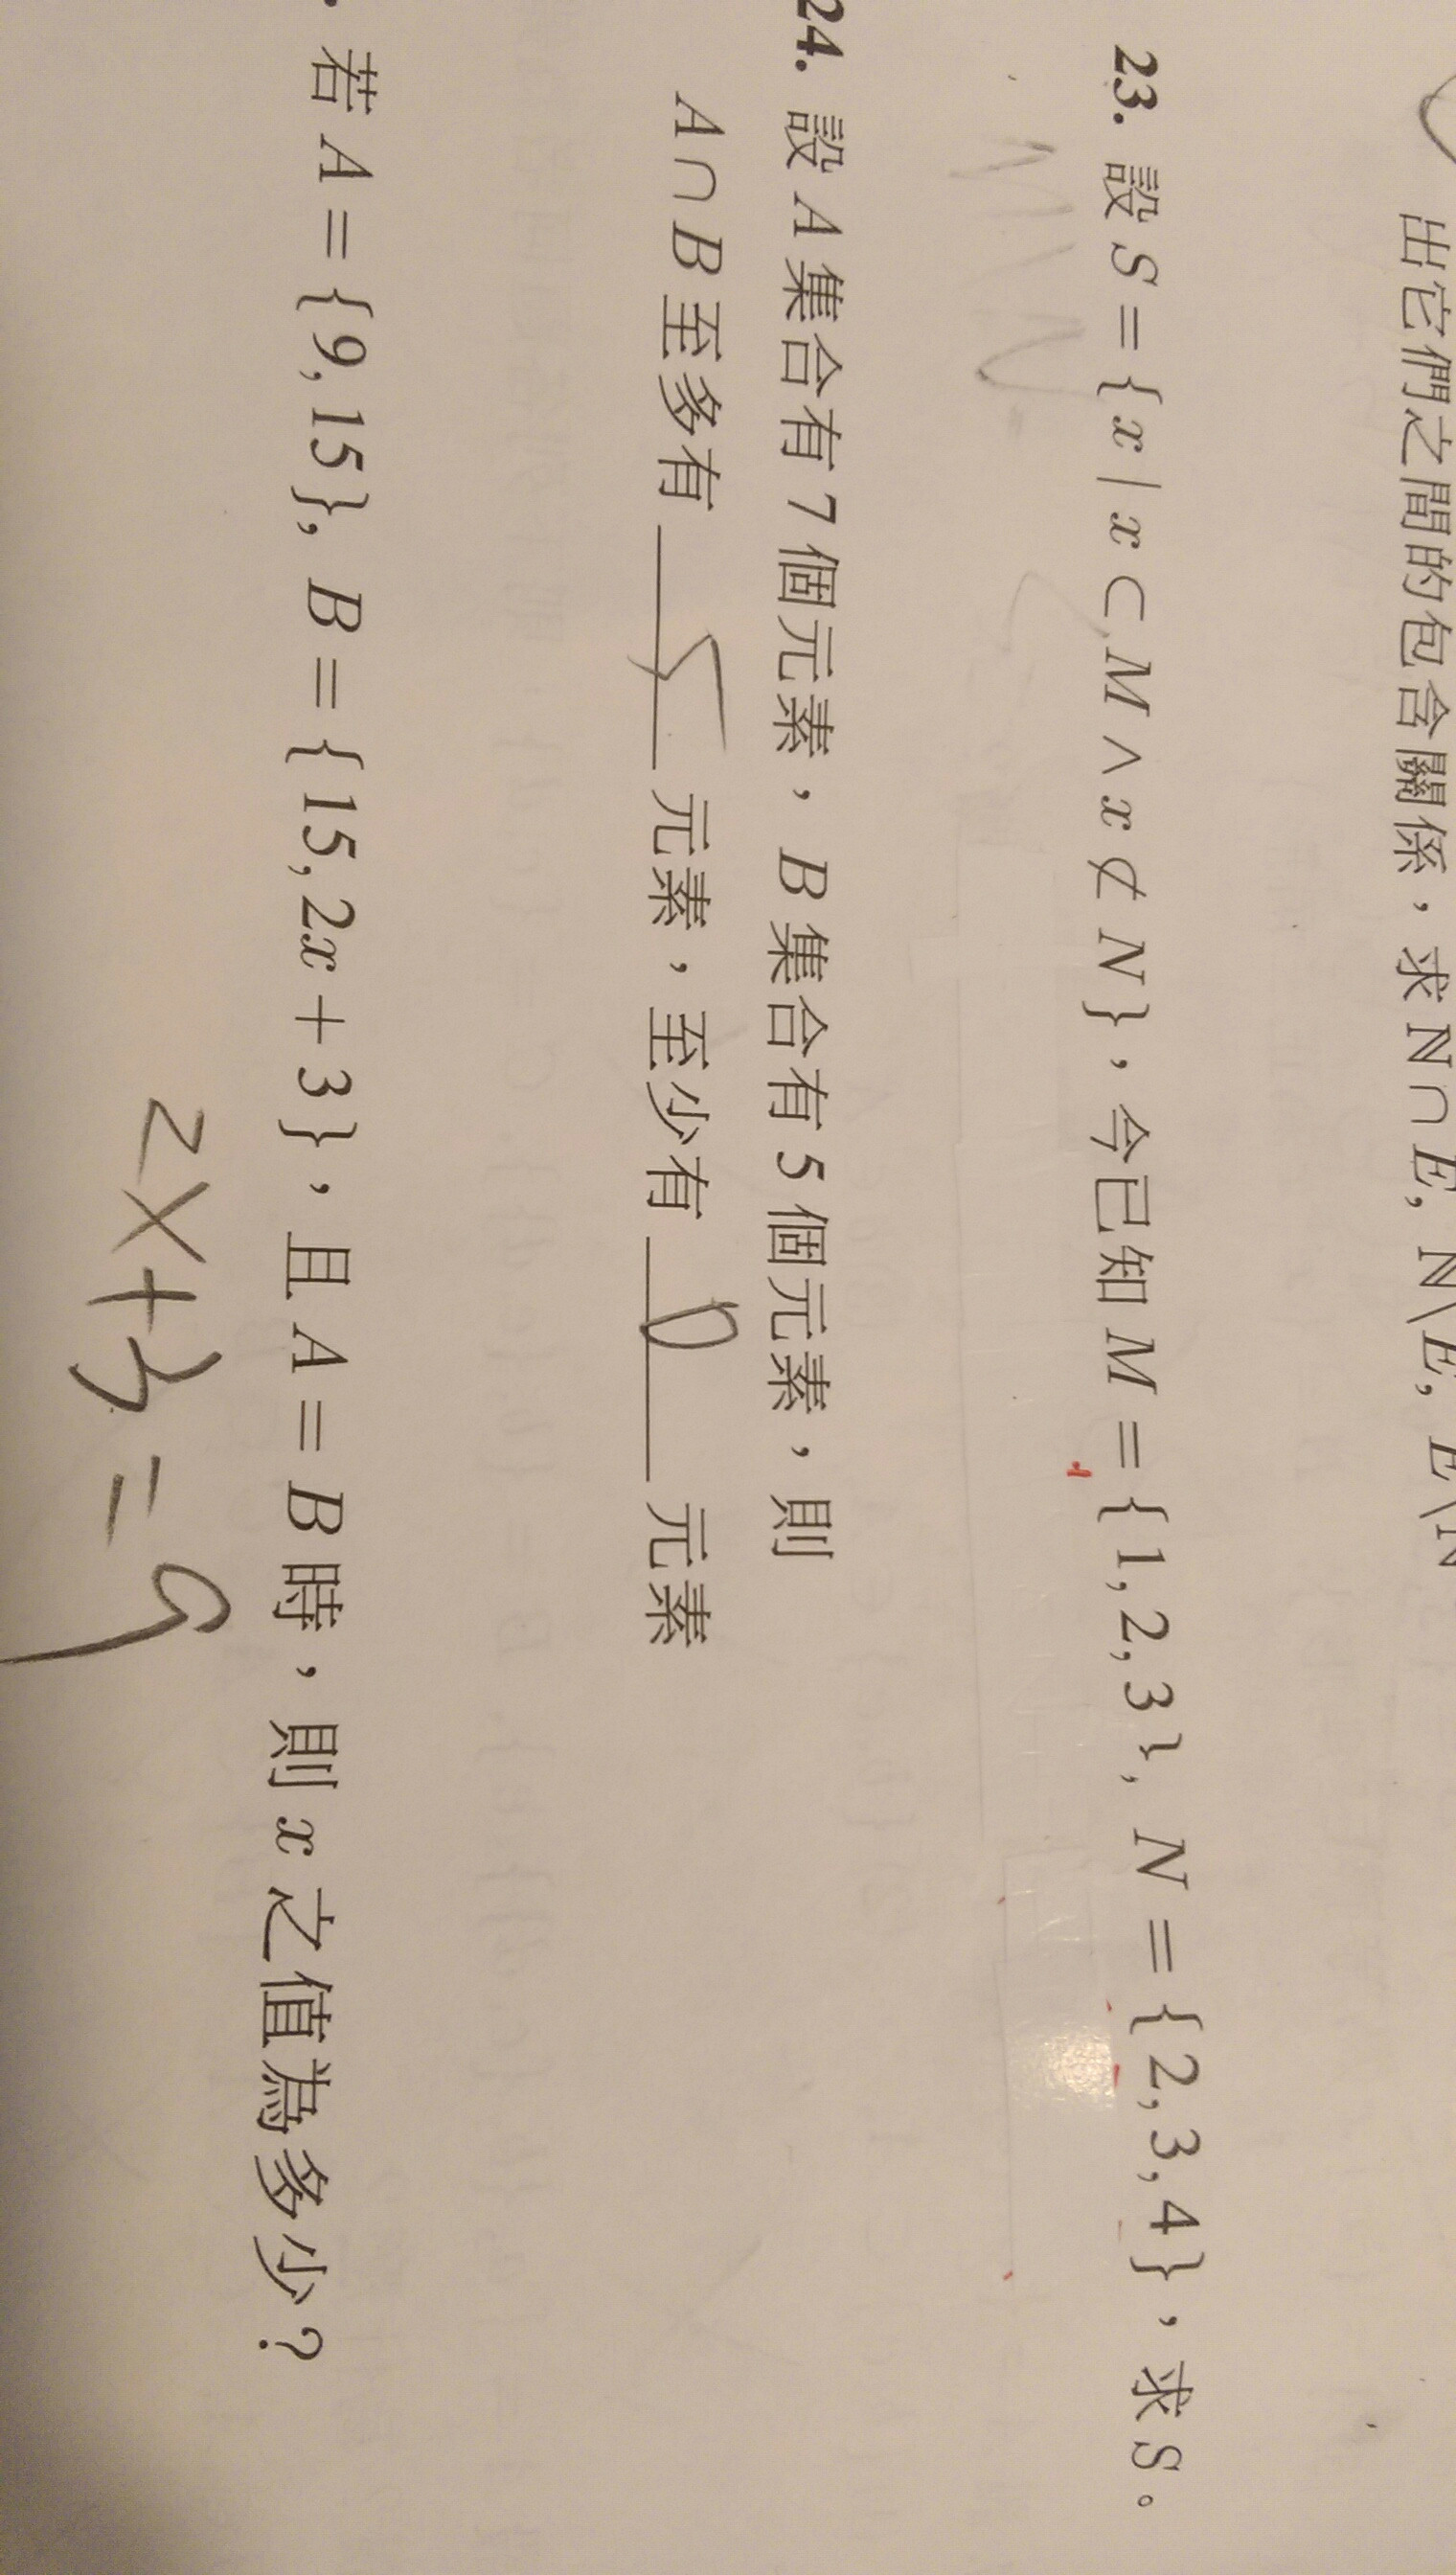 出它們之間的包含關係，求 ℕ∩E, ℕ\E, E\ℕ
23. 設 S = {x | x ⊂ M ∧ x ⊄ N}，今已知 M = {1, 2, 3}, N = {2, 3, 4}，求 S。
24. 設 A 集合有 7 個元素，B 集合有 5 個元素，則
A ∩ B 至多有 5 元素，至少有 0 元素
. 若 A = {9, 15}, B = {15, 2x + 3}，且 A = B 時，則 x 之值為多少？
2x+3=9